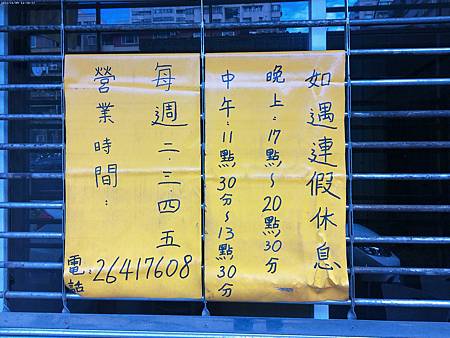 營業時間：
每週二.三.四.五
中午：11點30分~13點30分
晚上：17點~20點30分
如遇連假休息
電話：26417608